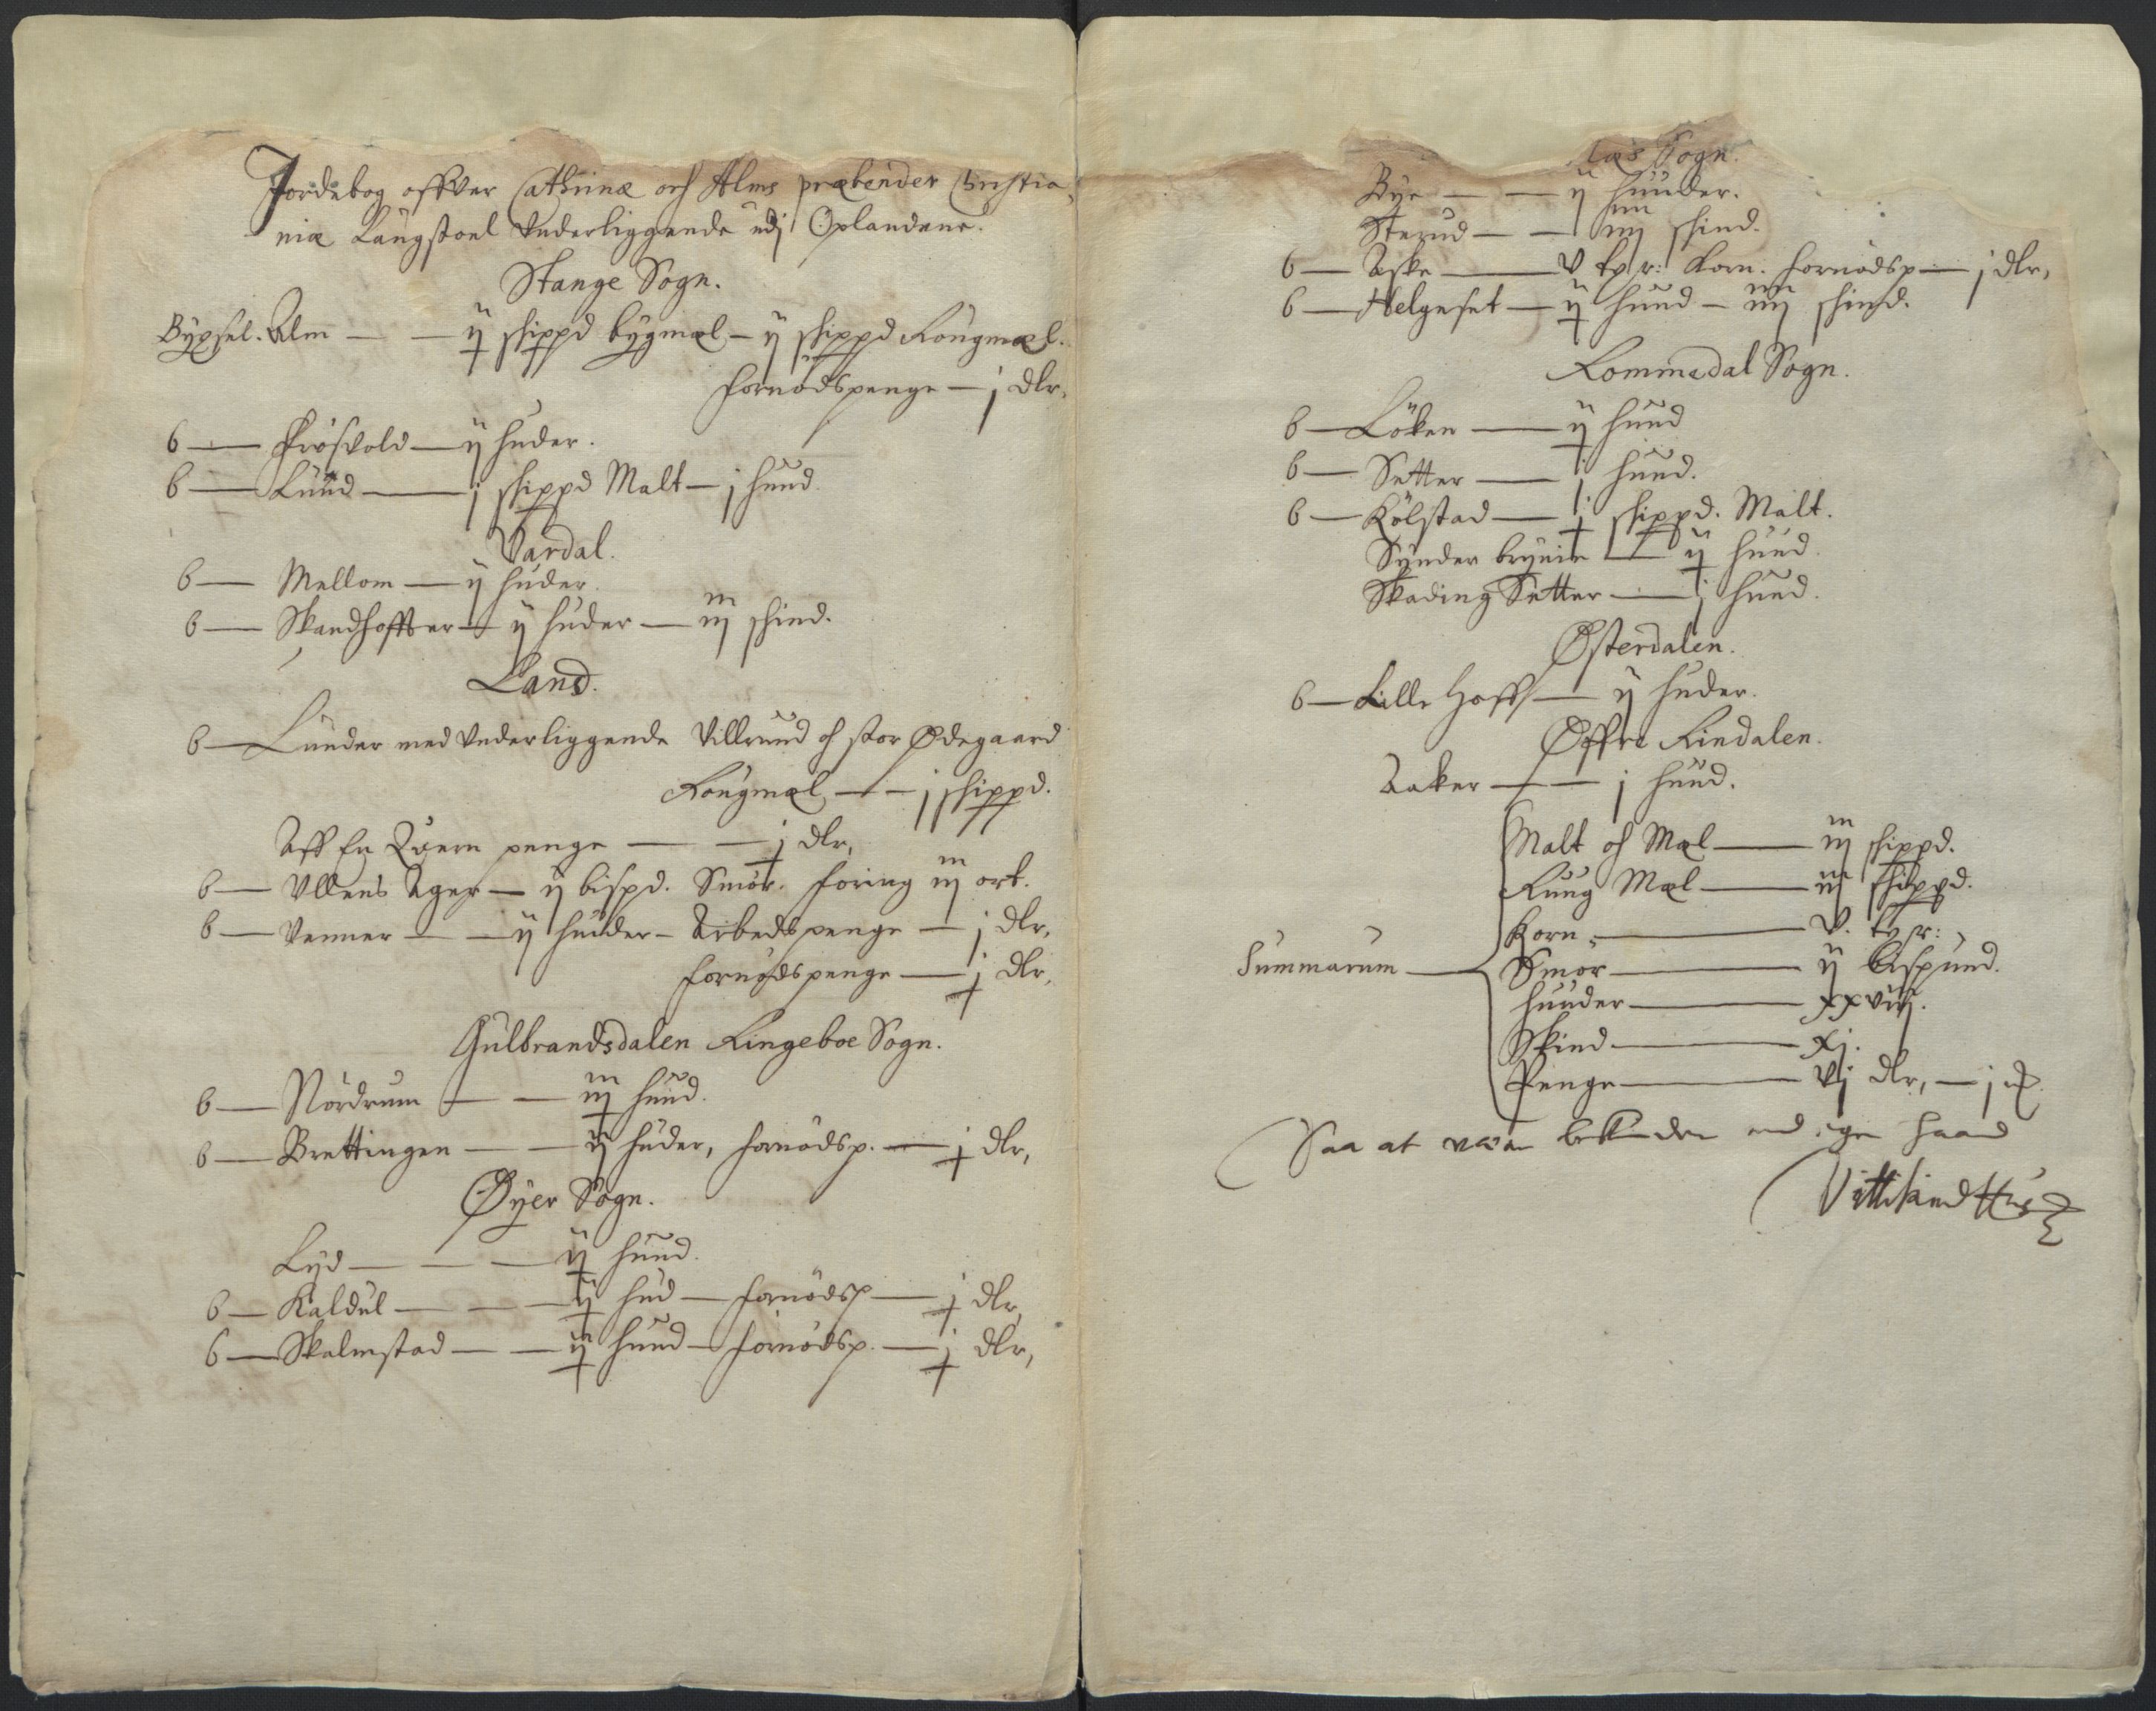 Jordebog offver Cathrinæ och Alms præbender Christia-
niæ Laugstoel Underliggende udj Oplandene.
Stange Sogn.
Bypsel. Alm — — ij skippd bygmæl — ij skippd Rougmæl.
fornødspenge — j dlr,
b — Frøsvold — ij huder.
b — Lund — j skippd Malt — j hund
Vardal.
b — Mellom — ij huder.
b — Skandhoffver — ij huder — iij skind.
Land.
b — Lunder med Underliggende Villrund oc stor Ødegaard
Rougmæl — — j skippd.
Aff En Quern penge — — j dlr,
b — Ullens Ager — ij bispd. Smör. foring iij ort.
b — Venner — — ij huuder — Arbedspenge — j dlr,
fornødspenge — j dlr,
Gulbrandsdalen Ringeboe Sogn.
b — Nordrum — — iij huud.
b — Brettingen — — ij huder, fornødsp. — j dlr,
Øyer Sogn.
Lyd — — — ij huud.
b — Kaldul — — — ij hud — fornödsp — j dlr,
b — Skalmstad — — ij huud — fornødsp. — j dlr,
læs Sogn.
Bye — — ij huuder.
Sterud — — iiij skind.
b — Aske — V tp r: Korn. fornødsp — j dlr,
b — Helgeset — ij huud — iiij skind.
Rommedal Sogn.
b — Löken — ij huud
b — Setter — j huud.
b — Kölstad — j skippd. Malt.
Synder brynie — ij huud.
Skading Setter — j huud.
Østerdalen.
b — Lille Hoff — ij huder.
Øffre Rindalen.
Aaker — — j huud.
Malt oc Mæl — iij skippd.
Ruug Mæl — iij skippd.
Korn — V. tp r:
Summarum — Smør — ij bispund.
huuder — xxviij.
Skind — xj.
Penge — Vj dlr, — j
Saa at være bekiender med egen haand